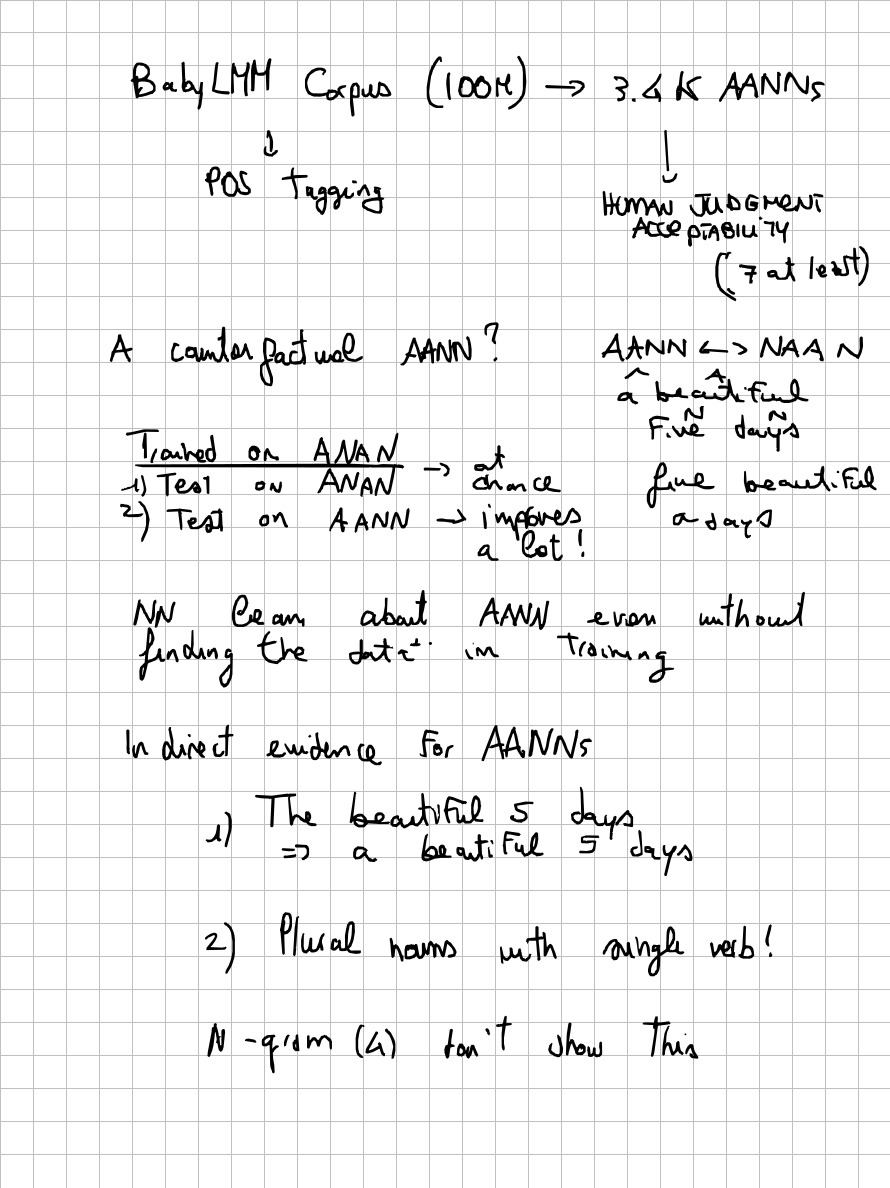 BabyLMM Corpus (100M) → 3.4K AANNs
↓
POS Tagging
↓
HUMAN JUDGMENT
ACCEPTABILITY
(7 at least)
A counterfactual AANN?
AANN <-> NAAN
a beautiful
Five days
A A
N N
five beautiful
a days
Trained on ANAN
1) Test on ANAN → at chance
2) Test on AANN → improves a lot!
NN learn about AANN even without
finding the data in training
Indirect evidence for AANNs
1) The beautiful 5 days
=> a beautiful 5 days
2) Plural nouns with single verb!
N-gram (4) don't show this